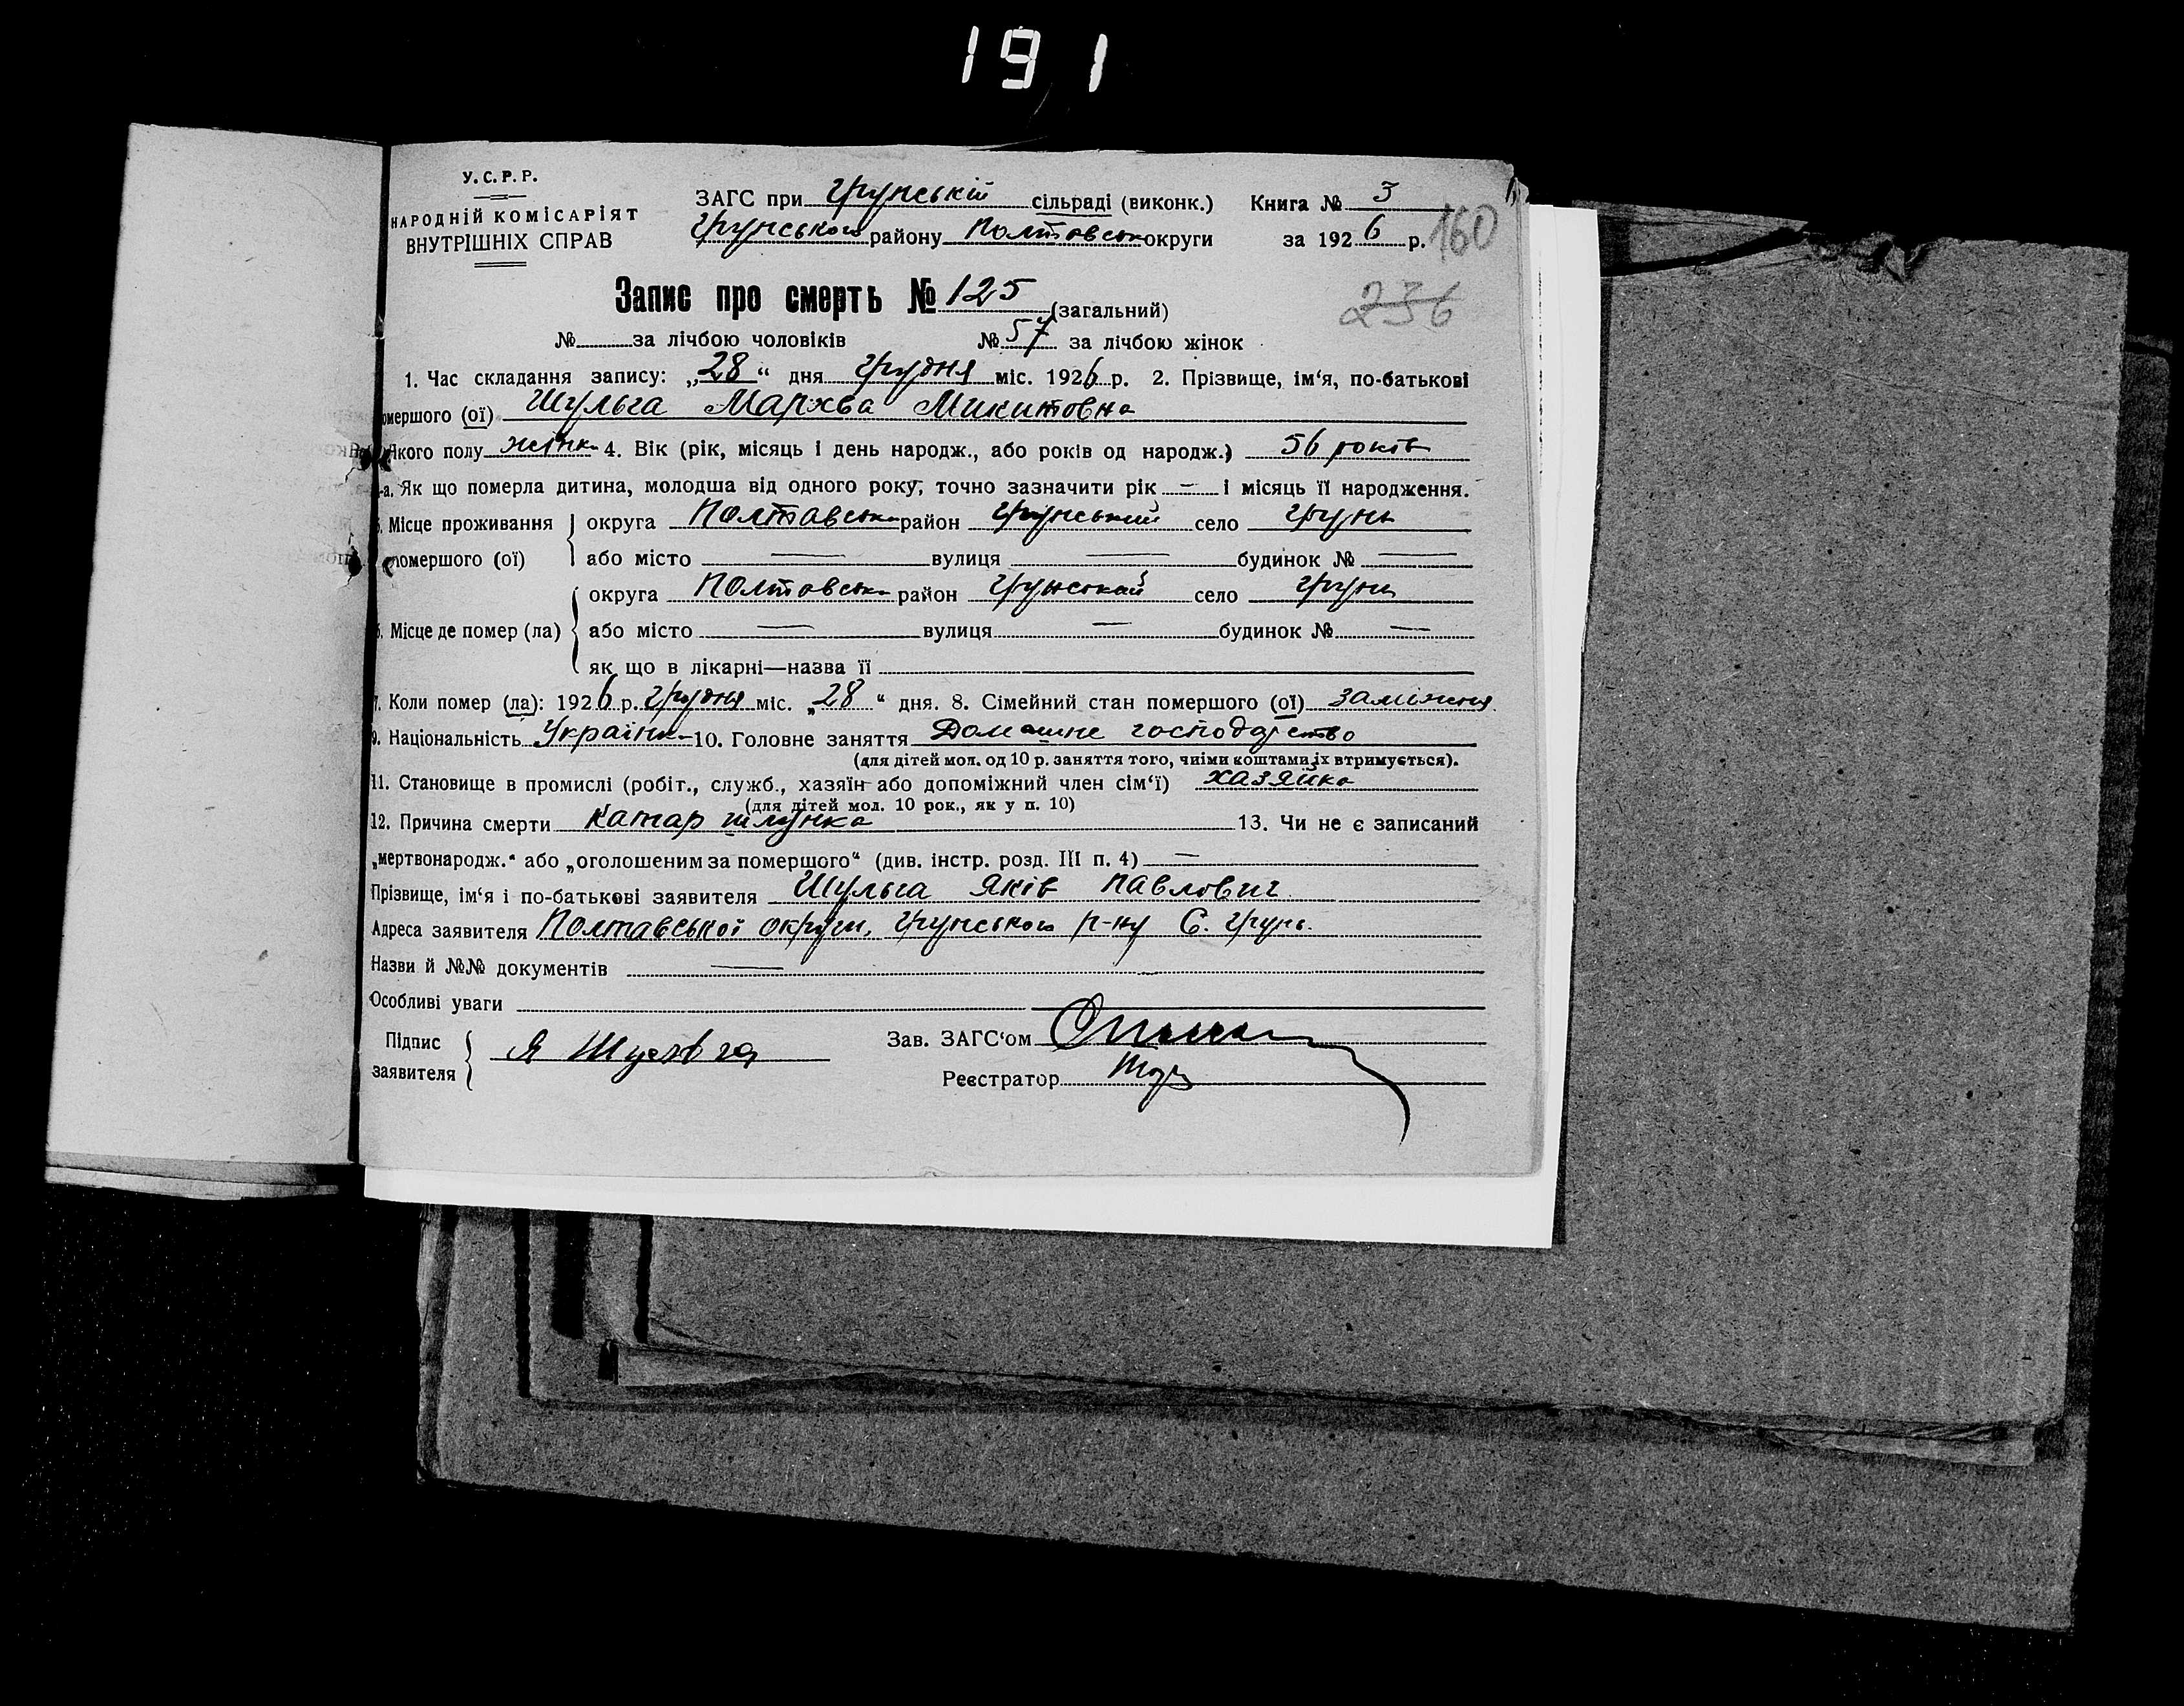 191
У.С.Р.Р.
НАРОДНІЙ КОМІСАРІЯТ
ВНУТРІШНІХ СПРАВ
ЗАГС при Грунській сільраді (виконк.) Книга № 3
Грунського району Полтавськ округи за 1926 р. 160
236
Запис про смерть № 125 (загальний)
№ за лічбою чоловіків № 57 за лічбою жінок
1. Час складання запису: „28“ дня Грудня міс. 1926 р. 2. Прізвище, ім‘я, по-батькові
омершого (ої) Шульга Мархва Микитовна
Якого полу жінк 4. Вік (рік, місяць і день народж., або років од народж.) 56 років
-а. Як що померла дитина, молодша від одного року, точно зазначити рік — і місяць її народження.
5. Місце проживання округа Полтавськ район Грунський село Грунь
помершого (ої) або місто — вулиця — будинок № —
округа Полтавськ район Грунський село Грунь
6. Місце де помер (ла) або місто — вулиця — будинок № —
як що в лікарні—назва її
7. Коли помер (ла): 1926 р. Грудня міс. „28“ дня. 8. Сімейний стан помершого (ої) заміжня
9. Національність Українк 10. Головне заняття Домашнє господарство
(для дітей мол. од 10 р. заняття того, чиїми коштами їх втримується).
11. Становище в промислі (робіт., служб., хазяїн або допоміжний член сім‘ї) хазяйка
(для дітей мол. 10 рок., як у п. 10)
12. Причина смерти Катар шлунка 13. Чи не є записаний
„мертвонародж.“ або „оголошеним за помершого“ (див. інстр. розд. III п. 4) —
Прізвище, ім‘я і по-батькові заявителя Шульга Яків Павлович
Адреса заявителя Полтавської округи, Грунського р-ну С. Грунь.
Назви й №№ документів —
Особливі уваги
Підпис
заявителя Я Шульга
Зав. ЗАГС‘ом
Реєстратор